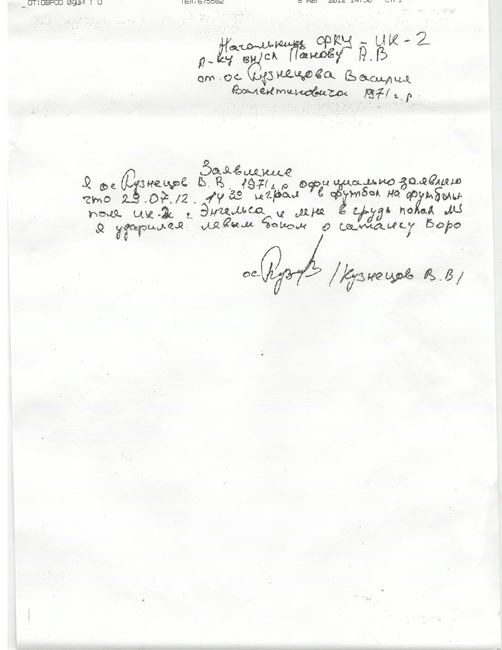 ОТ:ОВРСО ТЕЛ:675582 8 АВГ 2012 14:50 СТР1
Начальнику ФКУ - ИК - 2
п-ку вн/сл Панову А.В
от ос Кузнецова Василия
Валентиновича 1971 г.р.
Заявление
Я ос Кузнецов В.В 1971г.р официально заявляю
что 29.07.12. 14 30 играл в футбол на футбольн
поле ИК-2 г. Энгельса и мне в грудь попал мя
я ударился левым боком о штангу воро
ос /Кузнецов В.В/